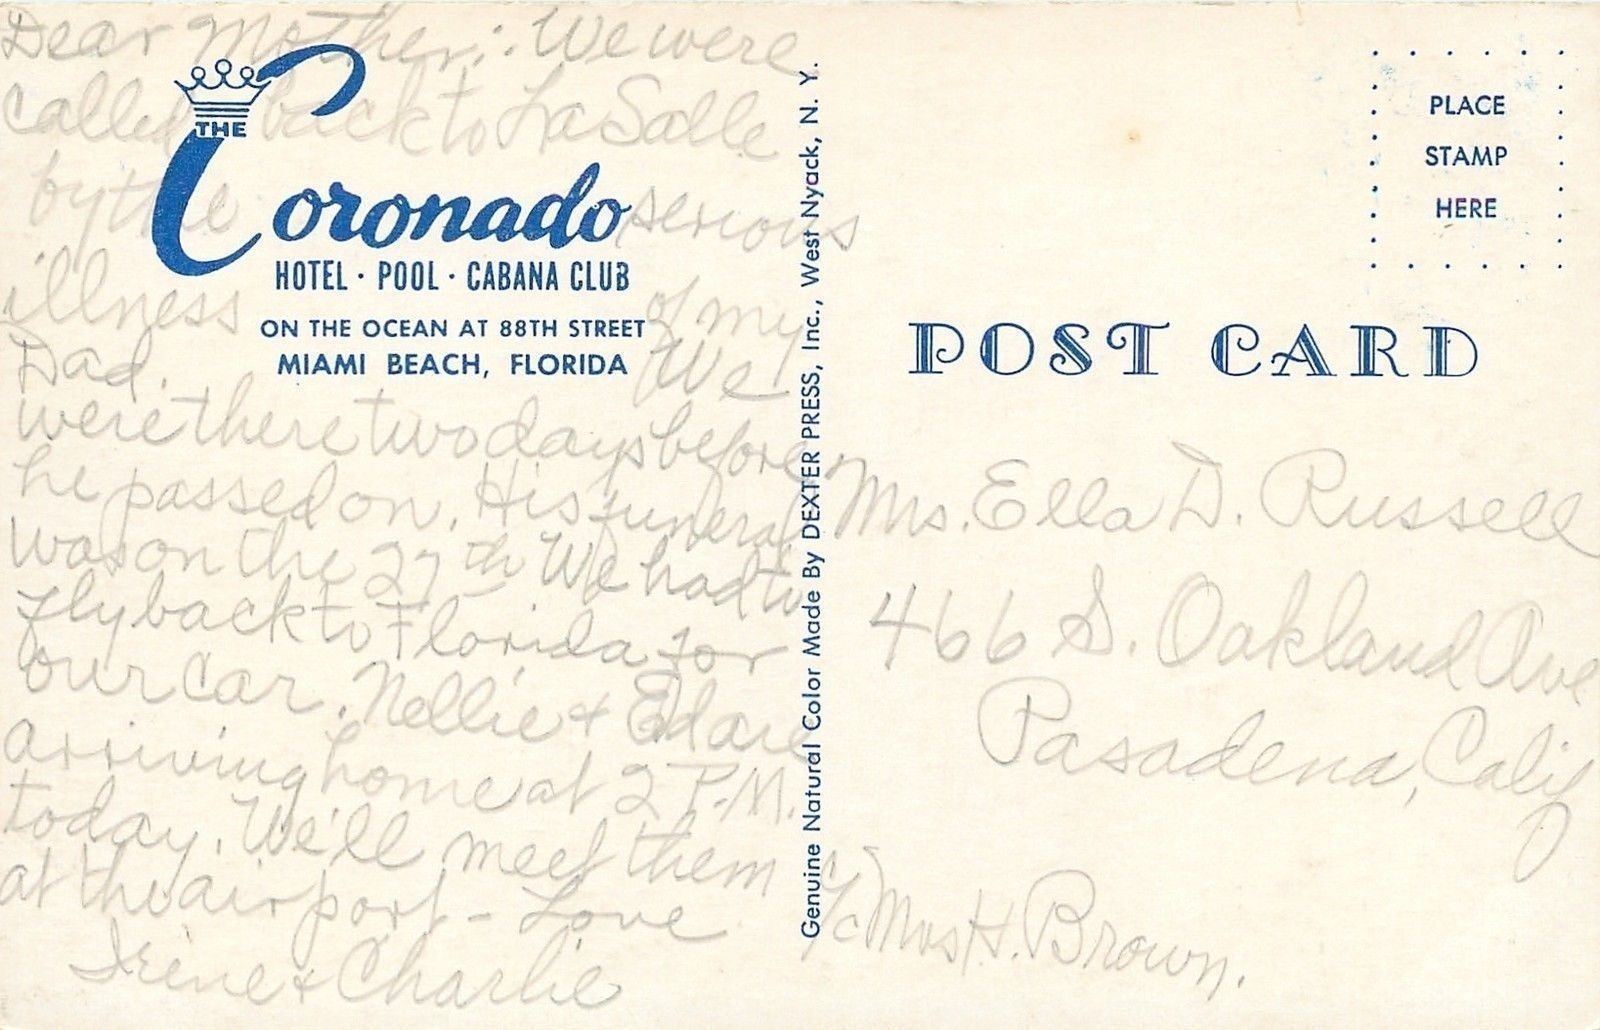 Dear Mother:. We were
called back to La Salle
by the serious
illness of my
Dad. We
were there two days before
he passed on. His funeral
was on the 27th We had to
fly back to Florida for
our car. Nellie & Ed are
arriving home at 2 P.M.
today. We'll meet them
at the airport - Love
Irene & Charlie
THE
Coronado
HOTEL · POOL · CABANA CLUB
ON THE OCEAN AT 88TH STREET
MIAMI BEACH, FLORIDA
Genuine Natural Color Made By DEXTER PRESS, Inc., West Nyack, N. Y.
PLACE
STAMP
HERE
POST CARD
Mrs. Ella D. Russell
466 S. Oakland Ave
Pasadena, Calif
c/o Mrs H. Brown.